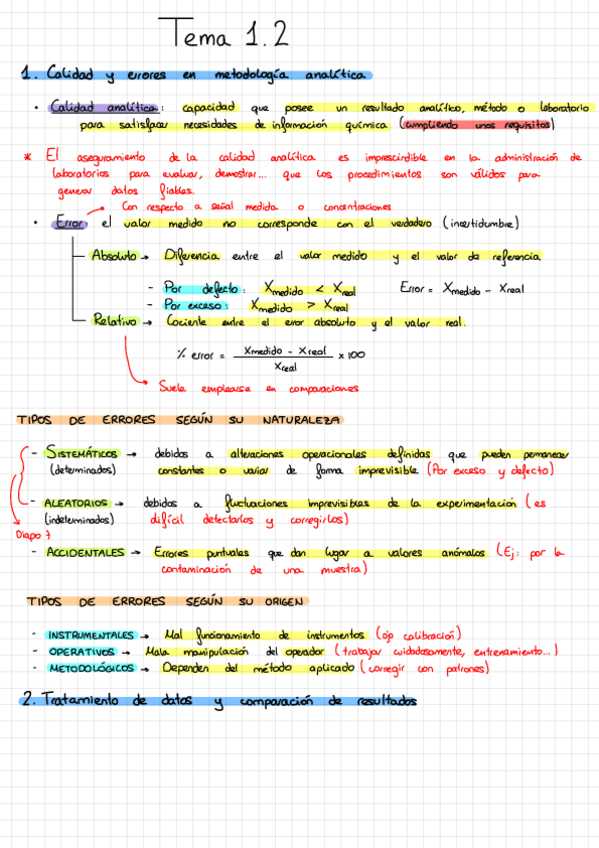 Tema 1.2
1. Calidad y errores en metodología analítica
• Calidad analítica: capacidad que posee un resultado analítico, método o laboratorio
para satisfacer necesidades de información química (cumpliendo unos requisitos)
* El aseguramiento de la calidad analítica es imprescindible en la administración de
laboratorios para evaluar, demostrar... que los procedimientos son válidos para
generar datos fiables.
Con respecto a señal medida o concentraciones
• Error el valor medido no corresponde con el verdadero (incertidumbre)
Absoluto → Diferencia entre el valor medido y el valor de referencia
- Por defecto: Xmedido < Xreal Error = Xmedido - Xreal
- Por exceso: Xmedido > Xreal
Relativo → Cociente entre el error absoluto y el valor real.
% error = (Xmedido - Xreal) / Xreal x 100
Suele emplearse en comparaciones
TIPOS DE ERRORES SEGÚN SU NATURALEZA
- SISTEMÁTICOS → debidos a alteraciones operacionales definidas que pueden permanecer
(determinados) constantes o variar de forma imprevisible (Por exceso y defecto)
- ALEATORIOS → debidos a fluctuaciones imprevisibles de la experimentación (es
(indeterminados) difícil detectarlos y corregirlos)
Diapo 7
- ACCIDENTALES → Errores puntuales que dan lugar a valores anómalos (Ej: por la
contaminación de una muestra)
TIPOS DE ERRORES SEGÚN SU ORIGEN
- INSTRUMENTALES → Mal funcionamiento de instrumentos (ojo calibración)
- OPERATIVOS → Mala manipulación del operador (trabajar cuidadosamente, entrenamiento...)
- METODOLÓGICOS → Dependen del método aplicado (corregir con patrones)
2. Tratamiento de datos y comparación de resultados